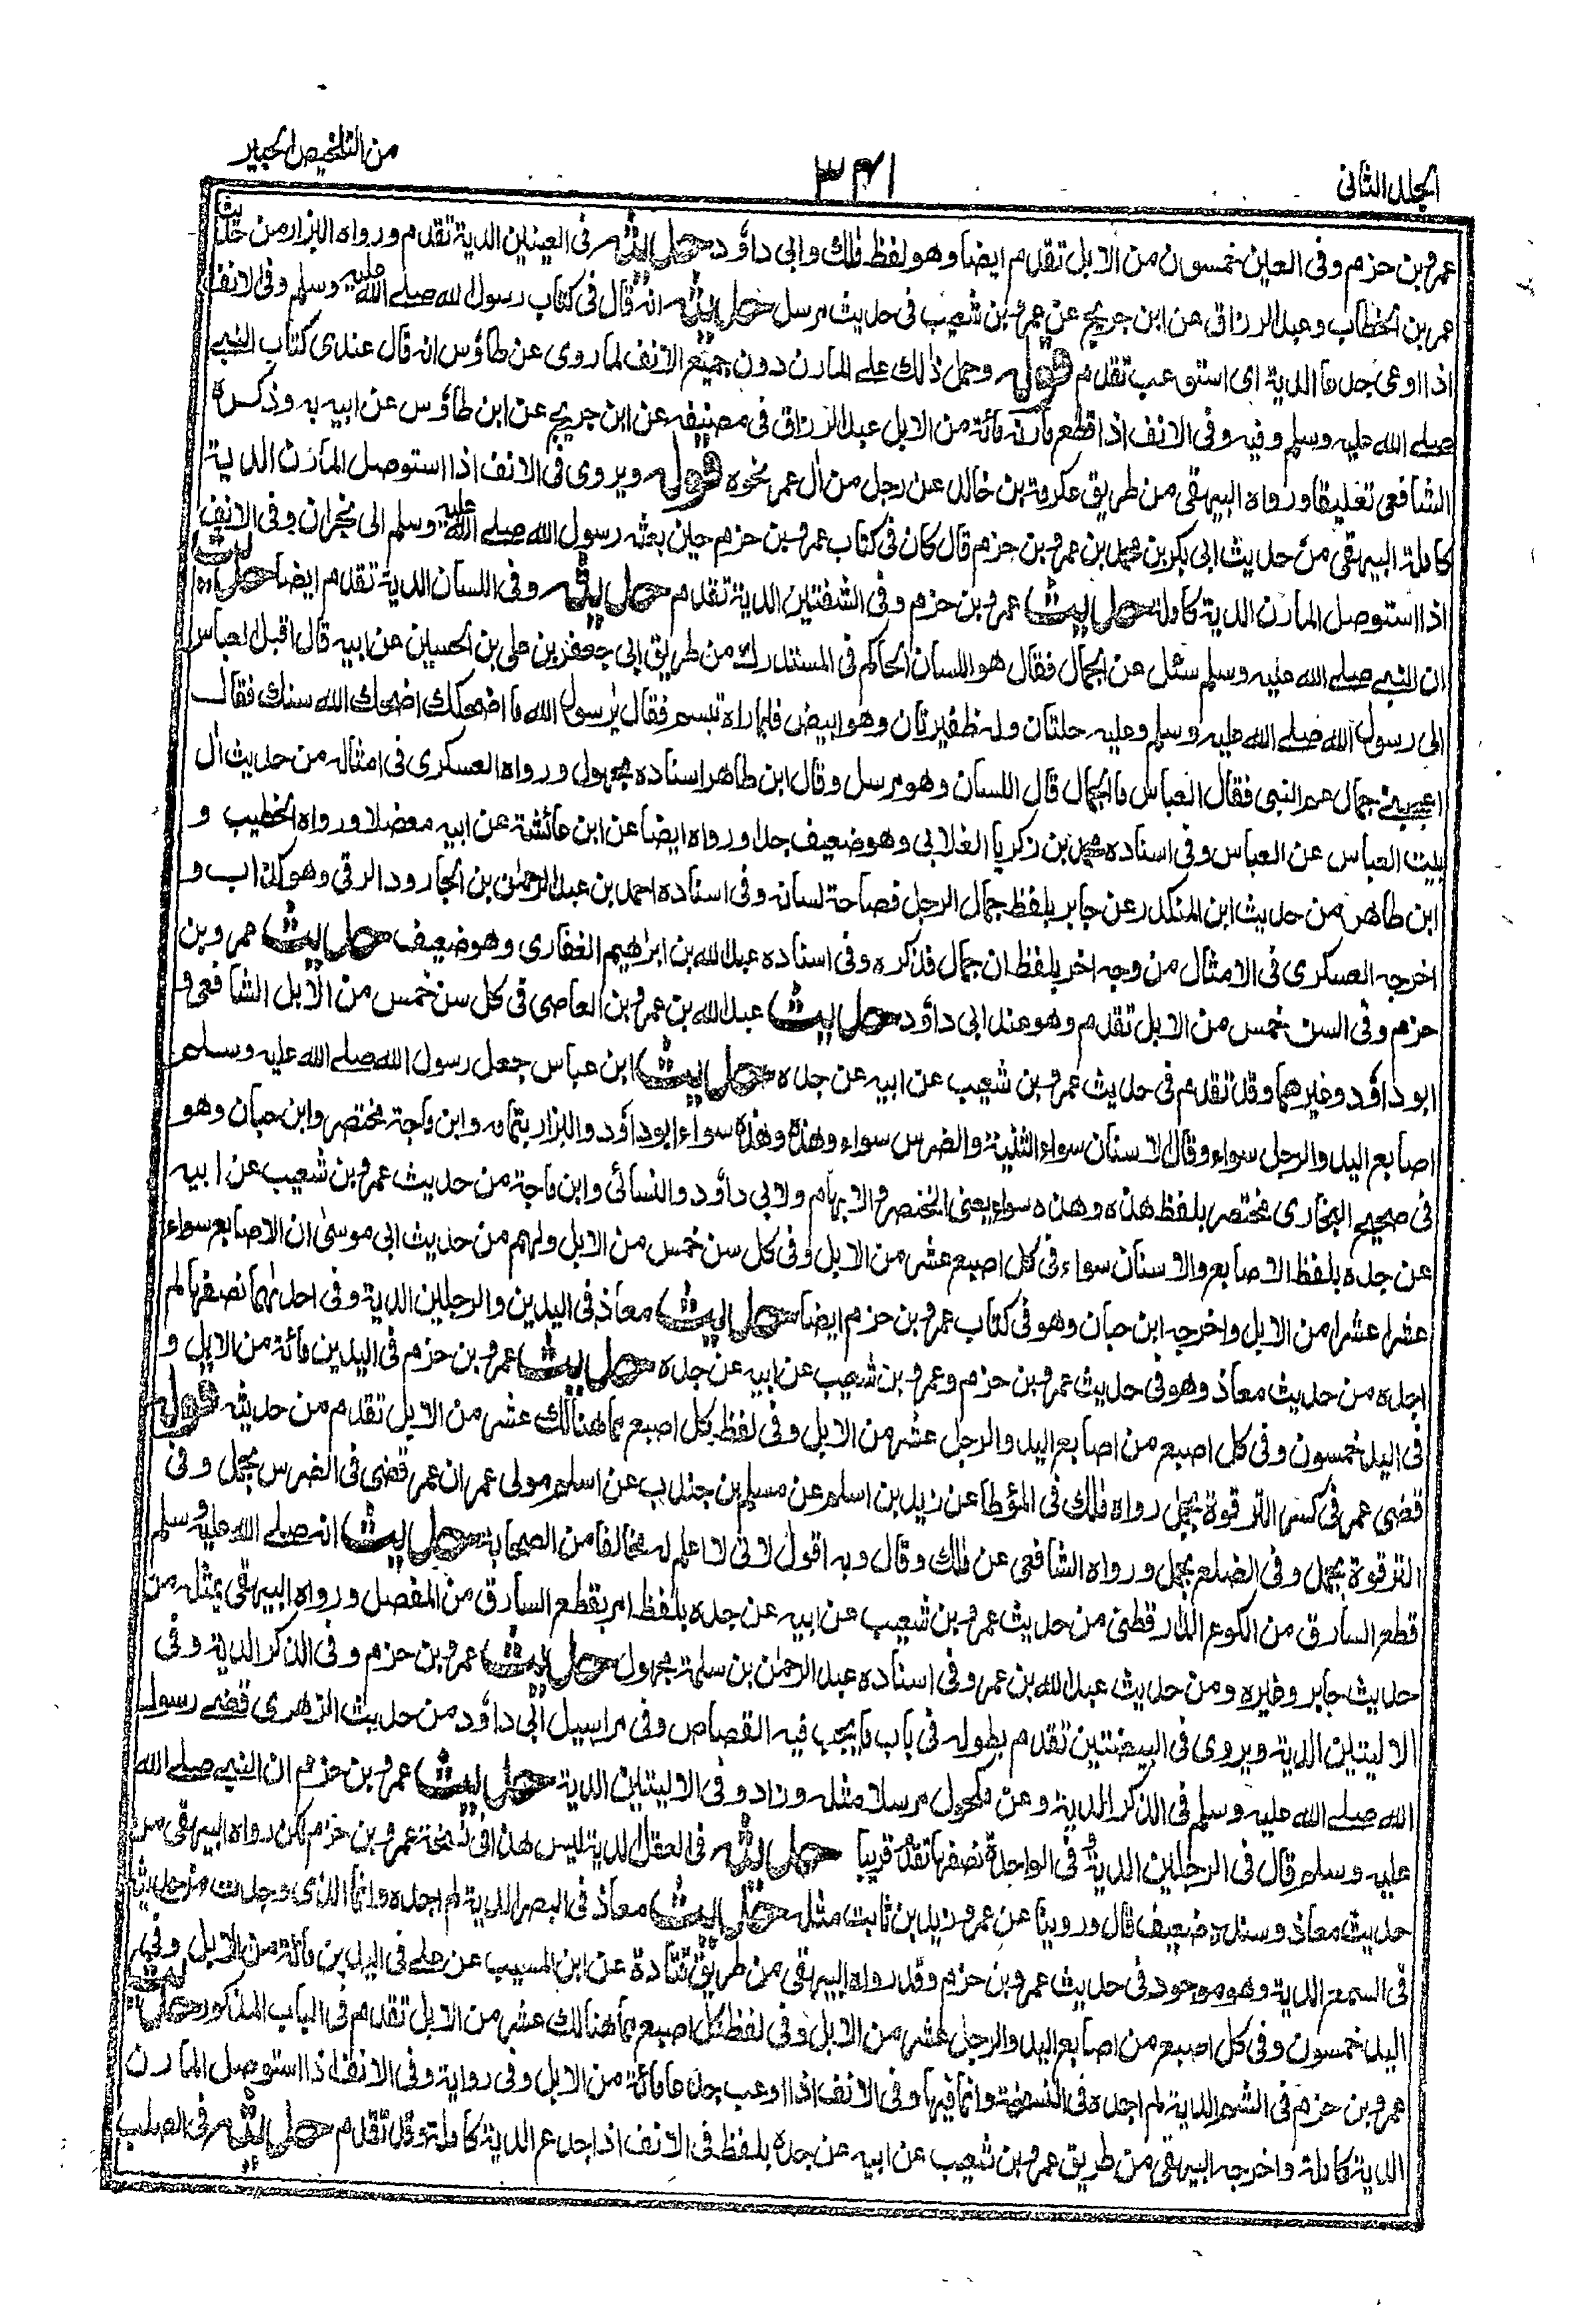 الجلد الثاني
٣٤١
من التلخيص الحبير
عمرو بن حزم وفى العين خمسون من الابل تقدم ايضا وهو لفظ مالك وابى داؤد حديثه فى العينين الدية تقدم ورواه البزار من حديث
عمر بن الخطاب وعبد الرزاق عن ابن جريج عن عمرو بن شعيب فى حديث مرسل حديثه انه قال فى كتاب رسول الله صلے الله عليه وسلم وفى الانف
اذا اوعى جدعا الدية اى استوعب تقدم قوله وحمل ذلك علے المارن دون جميع الانف لما روى عن طاؤس انه قال عندى كتاب النبے
صلے الله عليه وسلم وفيه وفى الانف اذا قطع مارنه مائة من الابل عبد الرزاق فى مصنفه عن ابن جريج عن ابن طاؤس عن ابيه به وذكره
الشافعى تعليقا ورواه البيهقى من طريق عكرمة بن خالد عن رجل من آل عمر نحوه قوله ويروى فى الانف اذا استوصل المارن الدية
كاملة البيهقى من حديث ابى بكر بن محمد بن عمرو بن حزم قال كان فى كتاب عمرو بن حزم حين بعثه رسول الله صلے الله عليه وسلم الى نجران وفى الانف
اذا استوصل المارن الدية كاملة حديث عمرو بن حزم وفى الشفتين الدية تقدم حديثه وفى اللسان الدية تقدم ايضا حديث
ان النبے صلے الله عليه وسلم سئل عن الجمال فقال هو اللسان الحاكم فى المستدرك من طريق ابى جعفر بن على بن الحسين عن ابيه قال اقبل العباس
الى رسول الله صلے الله عليه وسلم وعليه حلتان وله ظفيرتان وهو ابيض فلما راه تبسم فقال يا رسول الله ما اضحكك اضحك الله سنك فقال
اعجبنے جمال عم النبى فقال العباس ما الجمال قال اللسان وهو مرسل وقال ابن طاهر اسناده مجهول ورواه العسكرى فى امثاله من حديث ال
بيت العباس عن العباس وفى اسناده محمد بن زكريا الغلابى وهو ضعيف جدا ورواه ايضا عن ابن عائشة عن ابيه معضلا ورواه الخطيب و
ابن طاهر من حديث ابن المنكدر عن جابر بلفظ جمال الرجل فصاحة لسانه وفى اسناده احمد بن عبد الرحمن بن الجارود الرقى وهو كذاب و
اخرجه العسكرى فى الامثال من وجه اخر بلفظ ان جمال فذكره وفى اسناده عبد الله بن ابرهيم الغفارى وهو ضعيف حديث عمرو بن
حزم وفى السن خمس من الابل تقدم وهو عند ابى داؤد حديث عبد الله بن عمرو بن العاصى فى كل سن خمس من الابل الشافعى و
ابو داؤد وغيرهما وقد تقدم فى حديث عمرو بن شعيب عن ابيه عن جده حديث ابن عباس جعل رسول الله صلے الله عليه وسلم
اصابع اليد والرجل سواء وقال الاسنان سواء الثنية والضرس سواء وهذه وهذه سواء ابو داؤد والبزار بتمامه وابن ماجة مختصر وابن حبان وهو
فى صحيح البخارى مختصر بلفظ هذه وهذه سواء يعنى الخنصر والابهام ولابى داؤد والنسائى وابن ماجة من حديث عمرو بن شعيب عن ابيه
عن جده بلفظ الاصابع والاسنان سواء فى كل اصبع عشر من الابل وفى كل سن خمس من الابل ولهم من حديث ابى موسى ان الاصابع سواء
عشرا عشرا من الابل واخرجه ابن حبان وهو فى كتاب عمرو بن حزم ايضا حديث معاذ فى اليدين والرجلين الدية وفى احدٰهما نصفها لم
اجده من حديث معاذ وهو فى حديث عمرو بن حزم وعمرو بن شعيب عن ابيه عن جده حديث عمرو بن حزم فى اليدين مائة من الابل و
فى اليد خمسون وفى كل اصبع من اصابع اليد والرجل عشر من الابل وفى لفظ بكل اصبع مما هنالك عشر من الابل تقدم من حديثه قوله
قضى عمر فى كسر الترقوة بجمل رواه مالك فى المؤطا عن زيد بن اسلم عن مسلم بن جندب عن اسلم مولى عمر ان عمر قضى فى الضرس بجمل وفى
الترقوة بجمل وفى الضلع بجمل ورواه الشافعى عن مالك وقال وبه اقول لانى لا اعلم له مخالفا من الصحابة حديث انه صلے الله عليه وسلم
قطع السارق من الكوع الدارقطنى من حديث عمرو بن شعيب عن ابيه عن جده بلفظ امر بقطع السارق من المفصل ورواه البيهقى بمثله من
حديث جابر وغيره ومن حديث عبد الله بن عمر وفى اسناده عبد الرحمن بن سلمة مجهول حديث عمرو بن حزم وفى الذكر الدية وفى
الاليتين الدية ويروى فى البيضتين تقدم بطوله فى باب ما يجب فيه القصاص وفى مراسيل ابى داؤد من حديث الزهرى قضے رسول
الله صلے الله عليه وسلم فى الذكر الدية وعن مكحول مرسلا مثله وزاد وفى الاليتين الدية حديث عمرو بن حزم ان النبے صلے الله
عليه وسلم قال فى الرجلين الدية وفى الواحدة نصفها تقدم قريبا حديثه فى العقل الدية ليس هذا فى نسخة عمرو بن حزم لكن رواه البيهقى من
حديث معاذ وسنده ضعيف قال وروينا عن عمر وزيد بن ثابت مثله حديث معاذ فى البصر الدية لم اجده وانما الذى وجدت من حديثه
فى السمع الدية وهو موجود فى حديث عمرو بن حزم وقد رواه البيهقى من طريق قتادة عن ابن المسيب عن علے فى اليدين مائة من الابل وفى
اليد خمسون وفى كل اصبع من اصابع اليد والرجل عشر من الابل وفى لفظ لكل اصبع مما هنالك عشر من الابل تقدم فى الباب المذكور حديث
عمرو بن حزم فى الشم الدية لم اجده فى النسخة وانما فيها وفى الانف اذا اوعب جدعا مائة من الابل وفى رواية وفى الانف اذا استوصل المارن
الدية كاملة واخرجه البيهقى من طريق عمرو بن شعيب عن ابيه عن جده بلفظ فى الانف اذا جدع الدية كاملة وقد تقدم حديثه فى الصلب